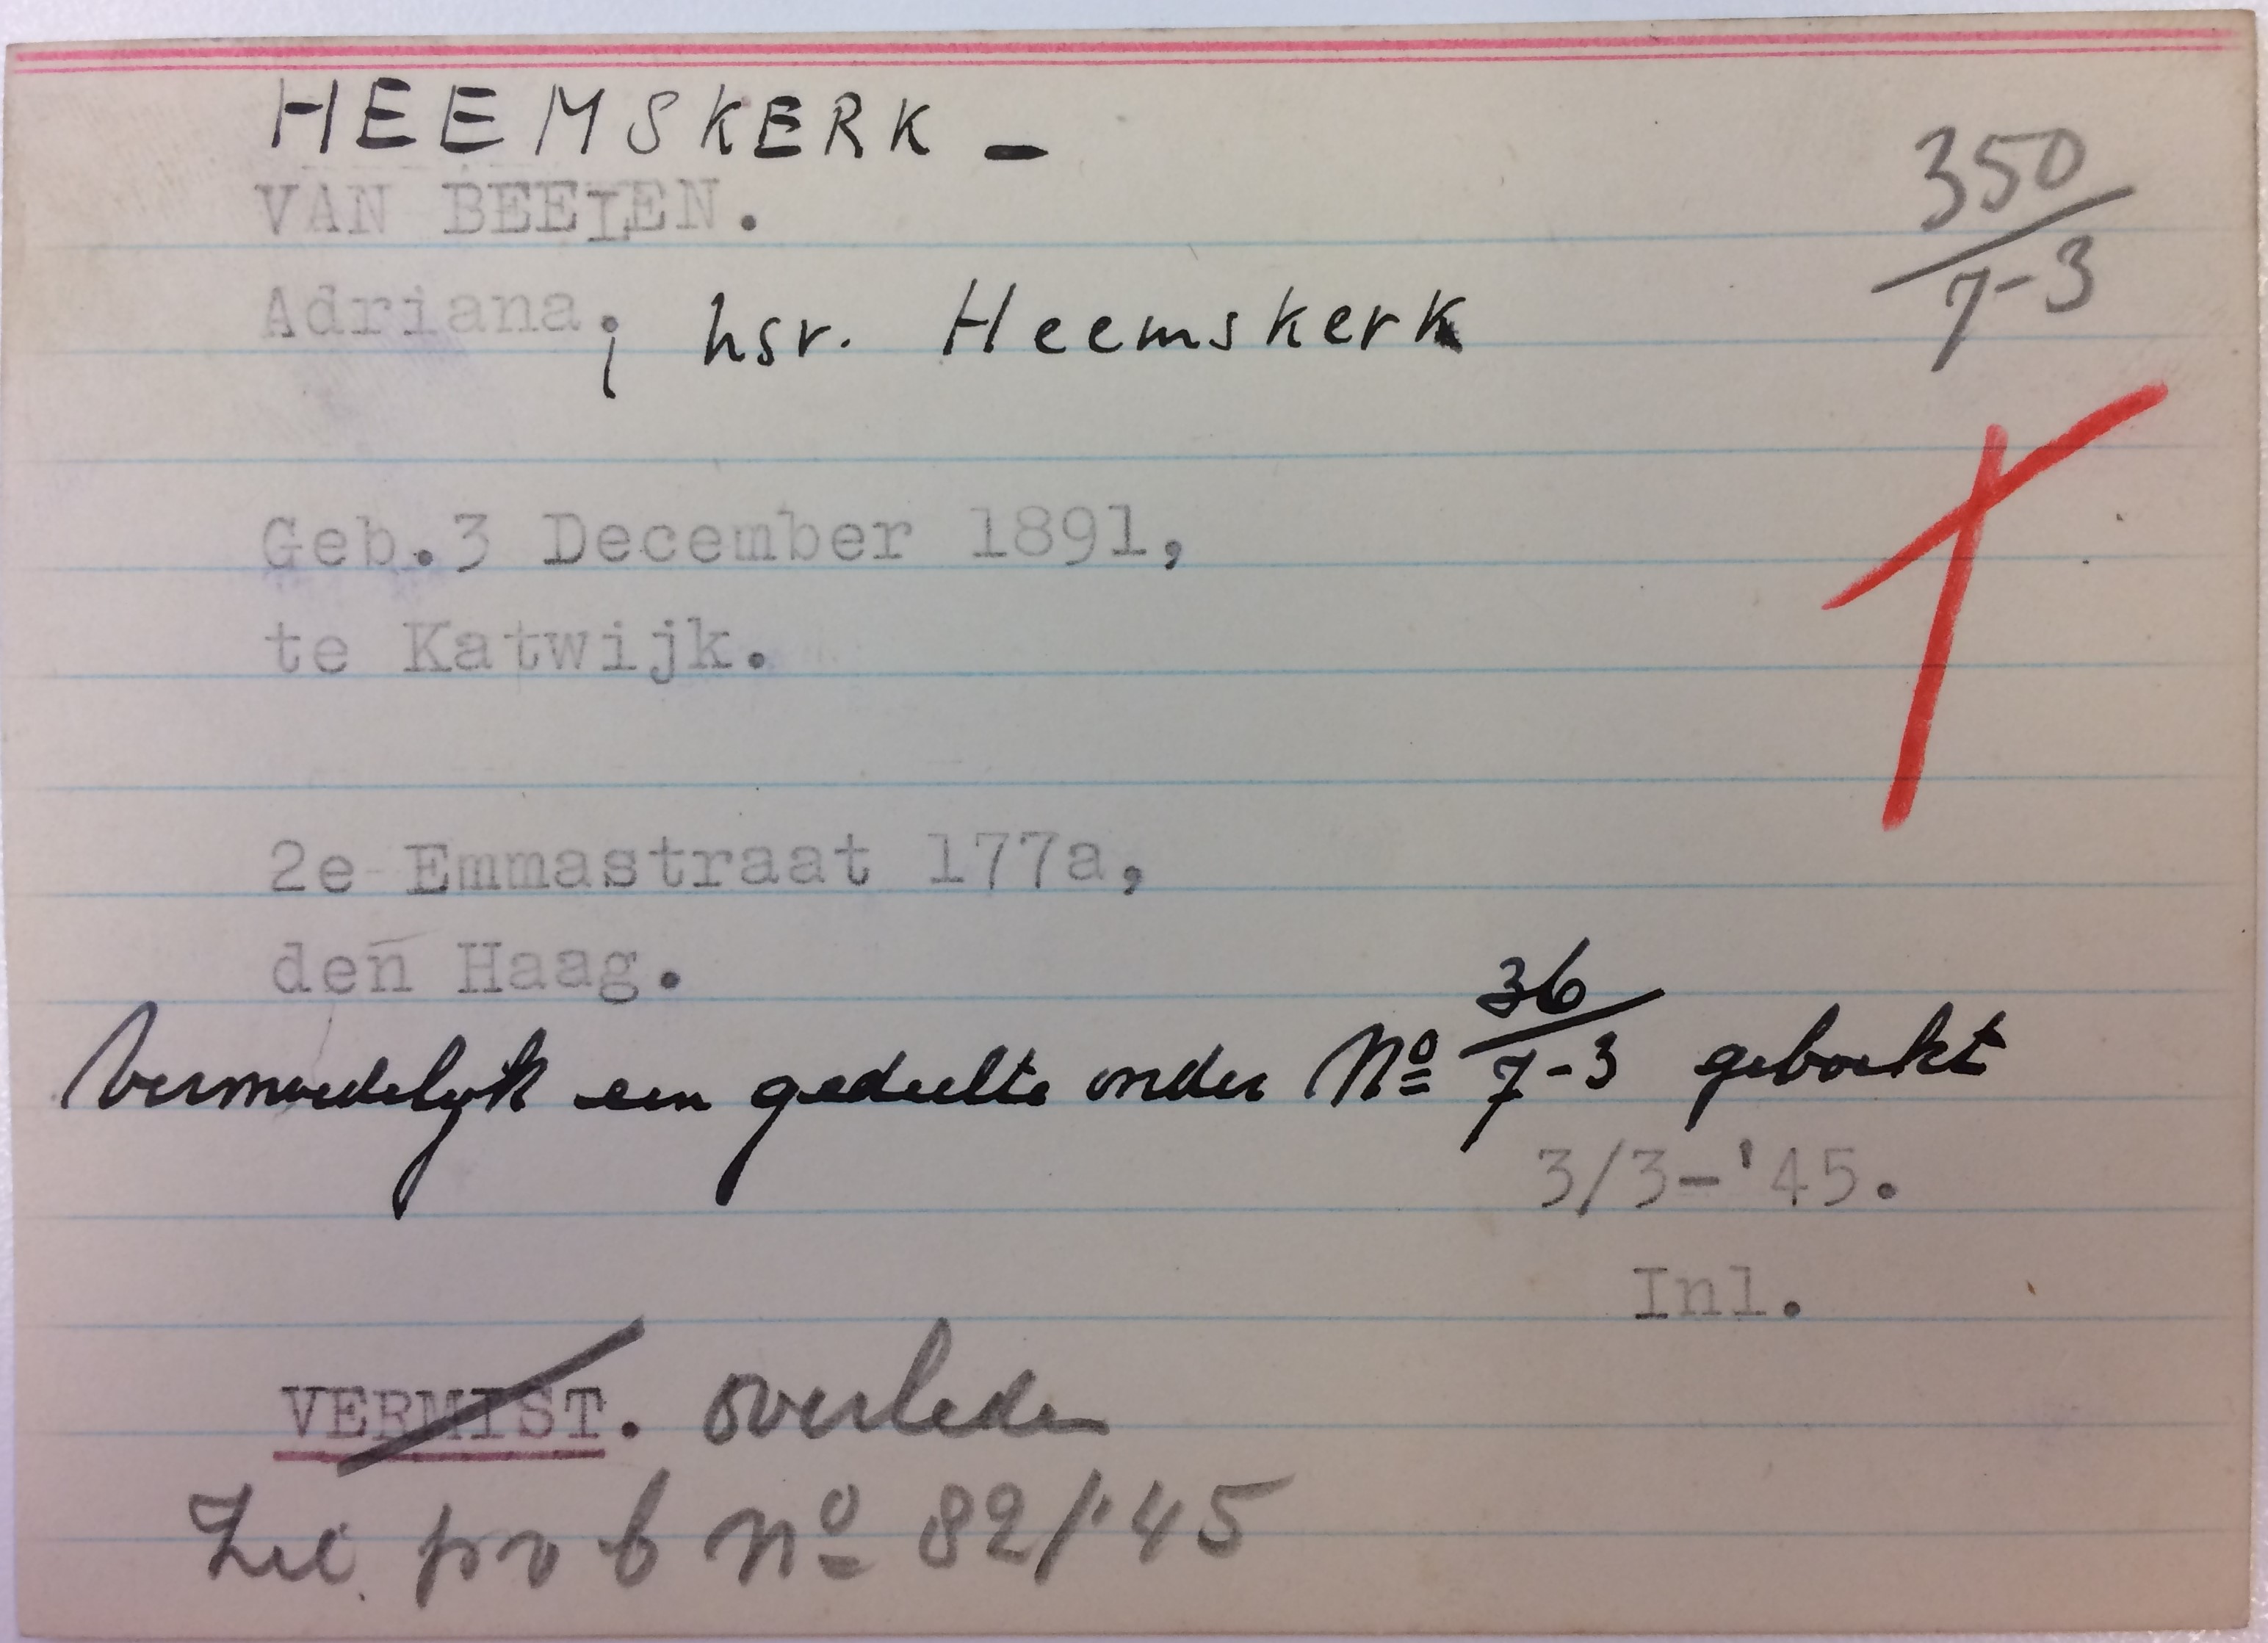 HEEMSKERK -
VAN BEELEN.
350
7-3
Adriana; hsr. Heemskerk
Geb.3 December 1891,
te Katwijk.
2e Emmastraat 177a,
den Haag.
Vermoedelyk een gedeelte onder No 36/7-3 geboekt
3/3-'45.
Inl.
VERMIST. overleden
Zie p v b no 82/'45